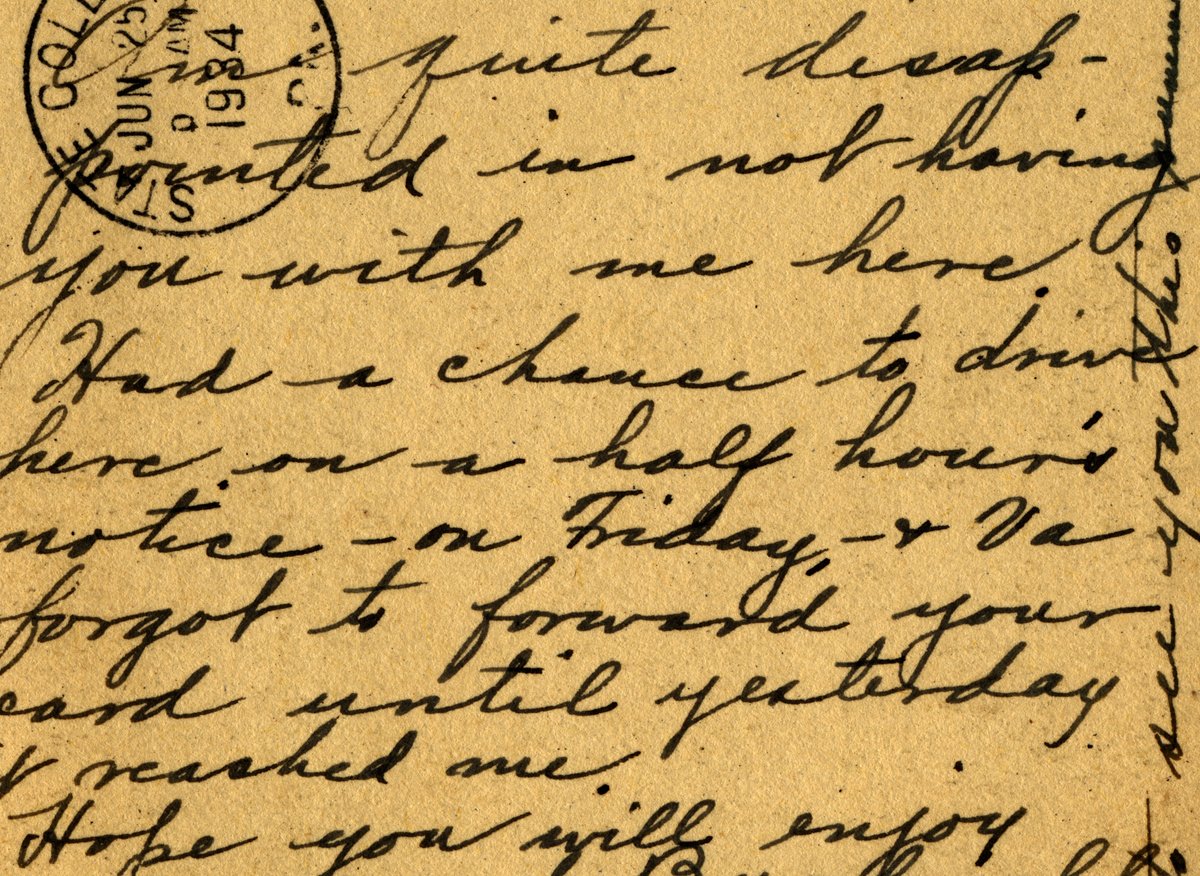 quite disap-
pointed in not having
you with me here.
Had a chance to drive
here on a half hour's
notice - on Friday, - & Va
forgot to forward your
card until yesterday
& reached me.
Hope you will enjoy
see you this
STATE COLL
JUN 25
AM
1934